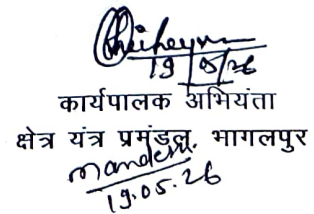 19/5/26
कार्यपालक अभियंता
क्षेत्र यंत्र प्रमंडल, भागलपुर
19.05.26